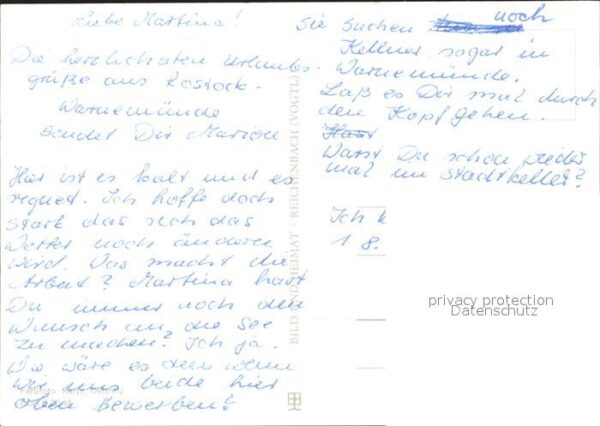 Liebe Martina!
Die herzlichsten Urlaubs-
grüße aus Rostock-
Warnemünde
sendet Dir Marion
Hier ist es kalt und es
regnet. Ich hoffe doch
stark das sich das
Wetter noch ändern
wird. Was macht die
Arbeit? Martina hast
Du immer noch den
Wunsch an die See
zu machen? Ich ja.
Wie wäre es denn wenn
wir uns beide hier
oben bewerben?
Sie suchen noch
Kellner, sogar in
Warnemünde.
Laß es Dir mal durch
den Kopf gehen.
Hast
Warst Du schon wieder
mal im Stadtkeller?
Ich k
18.
BILD UND HEIMAT · REICHENBACH (VOGTL)
privacy protection
Datenschutz